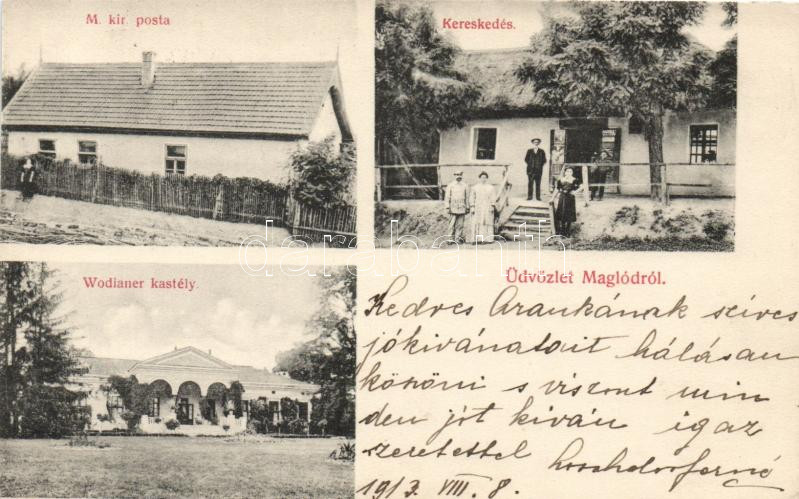 M. kir. posta
Kereskedés.
Wodianer kastély.
Üdvözlet Maglódról.
darabanth
Kedves Arankának szives
jókivánatait hálásan
köszöni s viszont min
den jót kiván igaz
szeretettel
1913. VIII. 8.